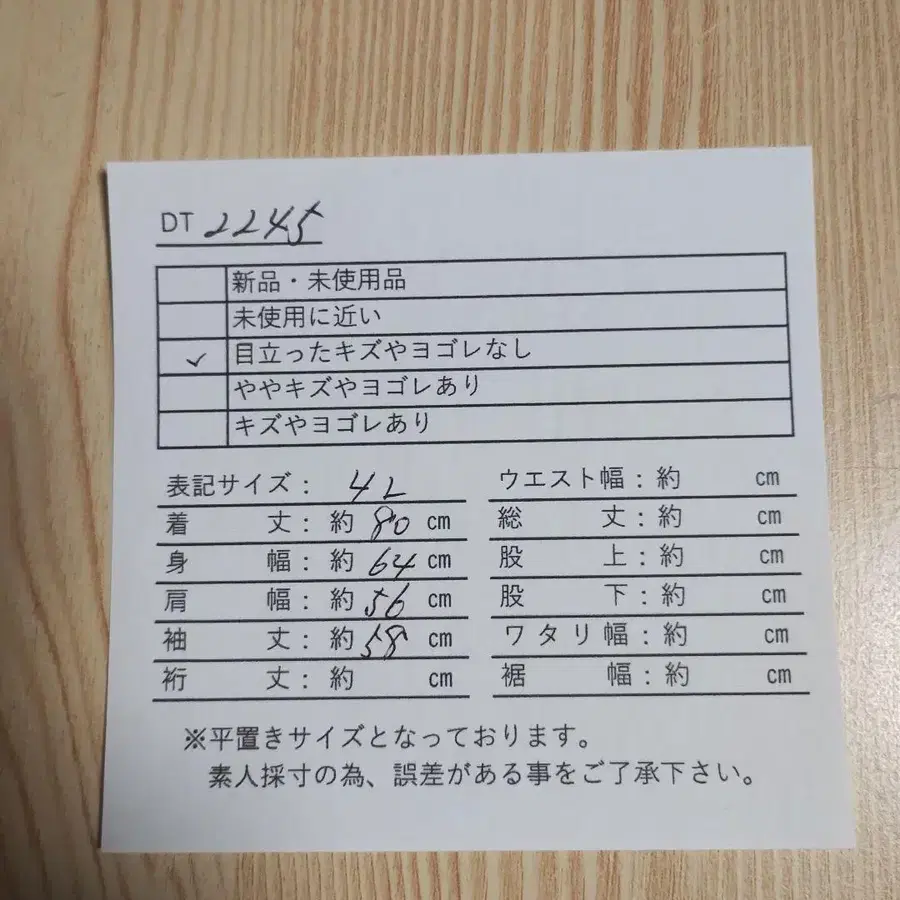 DT 2245
新品・未使用品
未使用に近い
✓ 目立ったキズやヨゴレなし
ややキズやヨゴレあり
キズやヨゴレあり
表記サイズ: 4L
着丈:約80cm
身幅:約64cm
肩幅:約56cm
袖丈:約58cm
裄丈:約 cm
ウエスト幅:約 cm
総丈:約 cm
股上:約 cm
股下:約 cm
ワタリ幅:約 cm
裾幅:約 cm
※平置きサイズとなっております。
素人採寸の為、誤差がある事をご了承下さい。